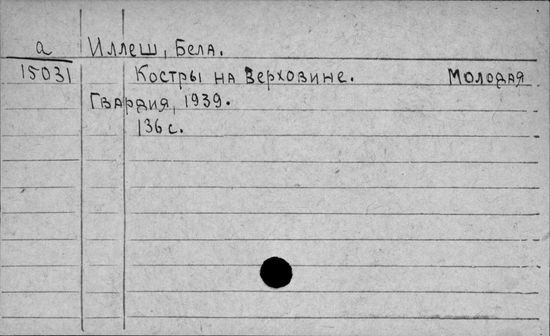 а Иллеш, Бела.
15031 Костры на Верховине. Молодая
Гвардия, 1939.
136 с.